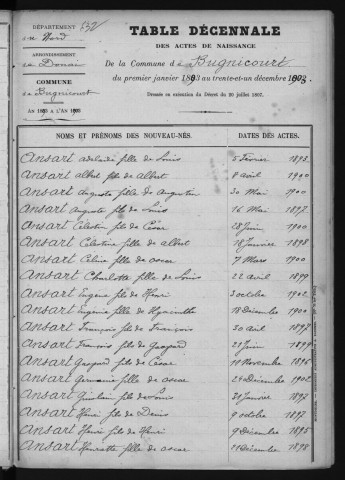 DÉPARTEMENT
du Nord
ARRONDISSEMENT
de Douai
COMMUNE
de Bugnicourt
AN 1893 A L'AN 1903
TABLE DÉCENNALE
DES ACTES DE NAISSANCE
De la Commune d e Bugnicourt
du premier janvier 1893 au trente-et-un décembre 1902.
Dressée en exécution du Décret du 20 juillet 1807.
NOMS ET PRÉNOMS DES NOUVEAU-NÉS. DATES DES ACTES.
Ansart Adelaïde fille de Louis 5 Février 1893
Ansart Albert fils de Albert 8 avril 1900
Ansart Augusta fille de Augustin 30 Mai 1900
Ansart Auguste fils de Louis 16 Mai 1897
Ansart Célestin fils de César 28 Juin 1900
Ansart Célestine fille de Albert 18 Janvier 1898
Ansart Céline fille de Oscar 7 Mars 1900
Ansart Charlotte fille de Louis 22 avril 1899
Ansart Eugène fils de Henri 3 octobre 1902
Ansart Eugénie fille de Hyacinthe 18 Décembre 1900
Ansart François fils de François 30 avril 1897
Ansart François fils de Gaspard 22 Juin 1899
Ansart Gaspard fils de César 11 Novembre 1896
Ansart Germaine fille de Oscar 24 Décembre
Ansart Ghislain fils de Louis 31 Janvier
Ansart Henri fils de Denis 9 octobre 1897
Ansart Henri fils de Henri 9 Décembre 1895
Ansart Henriette fille de Oscar 21 Décembre 1898